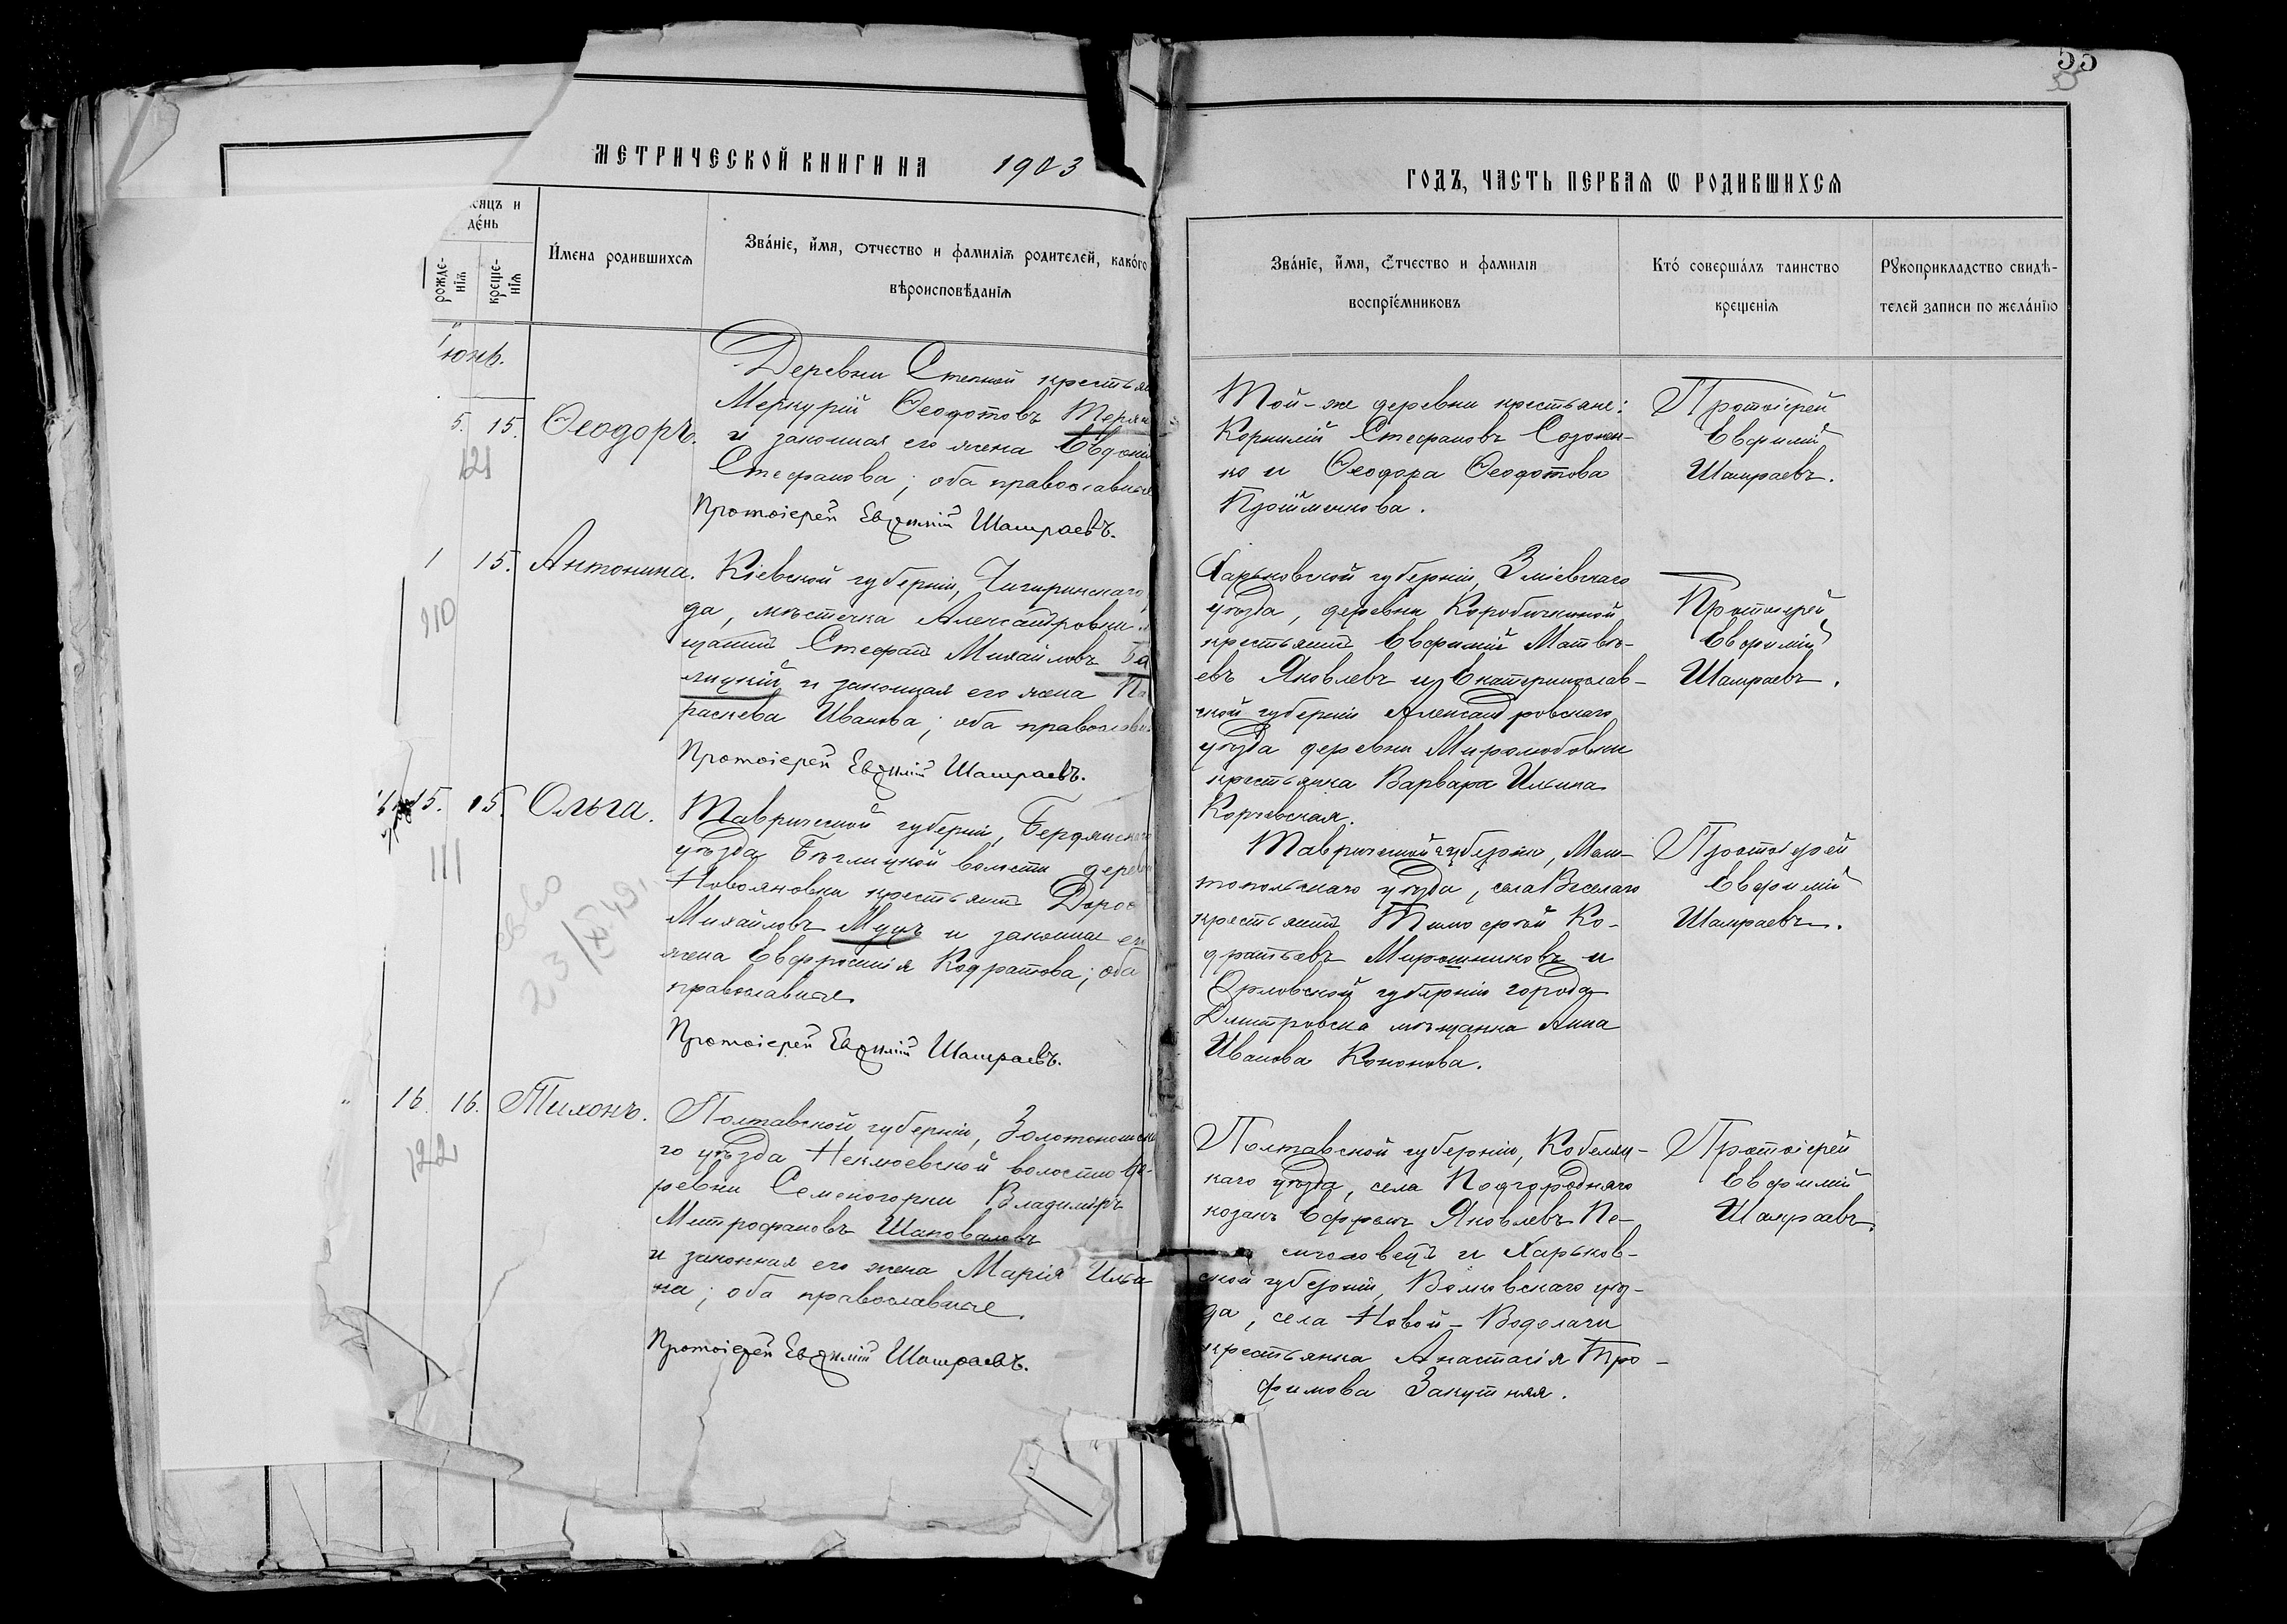 55
55
МЕТРИЧЕСКОЙ КНИГИ НА 1903
ГОДЪ, ЧАСТЬ ПЕРВАЯ Ѡ РОДИВШИХСЯ
сяцъ и
де́нь
рожде-
нія
креще-
нія
И́мена родившихся
Зва́ніе, и́мя, отчество и фамилія родителей, како́го
вѣроисповѣданія
Зва́ніе, и́мя, о́тчество и фамилія
воспріе́мниковъ
Кто́ соверша́лъ таинство
крещенія
Рꙋкоприкладство свидѣ-
телей записи по жела́нію
Іюнь.
5. 15. Ѳеодоръ.
121
Деревни Степной крестьян
Меркурій Ѳеодотовъ Терян
и законная его жена Евдокі
Стефанова; оба православные
Протоіерей Евфимій Шамраевъ.
Той-же деревни крестьяне:
Корнилій Стефановъ Созонен-
ко и Ѳеодора Ѳеодотова
Пройменкова.
Протоіерей
Евфимій
Шамраевъ.
1 15. Антонина.
110
Кіевской губерніи, Чигиринскаго
да, мѣстечка Александровки
щанинъ Стефанъ Михайловъ Га
лицкій и законная его жена Па
раскева Иванова; оба православн
Протоіерей Евфимій Шамраевъ.
Харьковской губерніи, Зміевскаго
уѣзда, деревни Коробочкиной
крестьянинъ Евфимій Матвѣ-
евъ Яковлевъ и Екатеринослав-
ской губерніи Александровскаго
уѣзда деревни Миролюбовки
крестьянка Варвара Ильина
Корчевская.
Протоіерей
Евфимій
Шамраевъ.
15. 15. Ольга.
111
23/XI 49
Таврической губерніи, Бердянскаго
уѣзда Бѣглицкой волости дерев
Новояновки крестьянинъ Дороѳ
Михайловъ Муцъ и законная ег
жена Евфросинія Кодратова; оба
православные
Протоіерей Евфимій Шамраевъ.
Таврической губерніи, Мели-
топольскаго уѣзда, села Веселаго
крестьянинъ Тимофей Ко-
дратьевъ Мирошниковъ и
Орловской губерніи города
Дмитровска мѣщанка Анна
Иванова Кононова.
Протоіерей
Евфимій
Шамраевъ.
16. 16. Тихонъ.
122
Полтавской губерніи, Золотоношска
го уѣзда Неклюевской волости де-
ревни Семеногорки Владиміръ
Митрофановъ Шаповаловъ
и законная его жена Марія Ильи
на; оба православные.
Протоіерей Евфимій Шамраевъ.
Полтавской губерніи, Кобеляц-
каго уѣзда, села Подгородняго
козакъ Ефремъ Яковлевъ По-
словецъ и Харьков-
ской губерніи, Валковскаго уѣз-
да, села Новой-Водолаги
крестьянка Анастасія Тро-
фимова Закутняя.
Протоіерей
Евфимій
Шамраевъ.